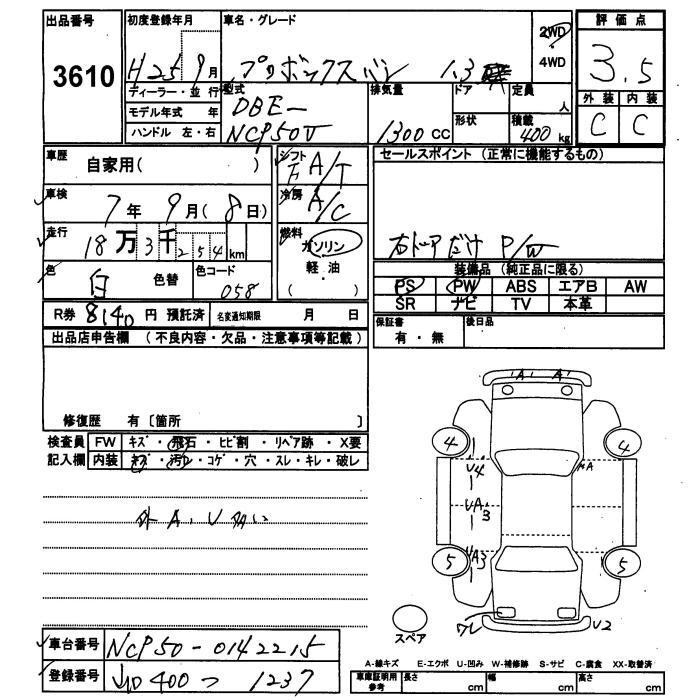 出品番号
3610
初度登録年月
H25 9月
ディーラー・並行
モデル年式 年
ハンドル 左・右
車名・グレード
プロボックスバン 1.3
2WD
4WD
型式
DBE-
NCP50V
排気量
1300 CC
ドア
形状
定員
人
積載
400 kg
評価点
3.5
外装 内装
C C
車歴
自家用( )
車検
7年 9月( 8日)
走行
18万3千254km
色
白 色替
色コード
058
シフト
F A/T
冷房
A/C
燃料
ガソリン
軽・油
( )
セールスポイント (正常に機能するもの)
右ドアだけ P/W
装備品 (純正品に限る)
PS PW ABS エアB AW
SR ナビ TV 本革
保証書
有・無
後日品
R券 8140 円 預託済
名変通知期限 月 日
出品店申告欄 (不良内容・欠品・注意事項等記載)
修復歴 有 [箇所 ]
検査員
記入欄
FW キズ・飛石・ヒビ割・リペア跡・X要
内装 キズ・汚レ・コゲ・穴・スレ・キレ・破レ
外 A.U 多い
A A
4 4
U4
A
UA3
UA3
5 5
ワレ
U2
スペア
車台番号
NCP50-0142215
登録番号
400つ 1237
A-線キズ E-エクボ U-凹み W-補修跡 S-サビ C-腐食 XX-取替済
車庫証明用
参考
長さ cm
幅 cm
高さ cm